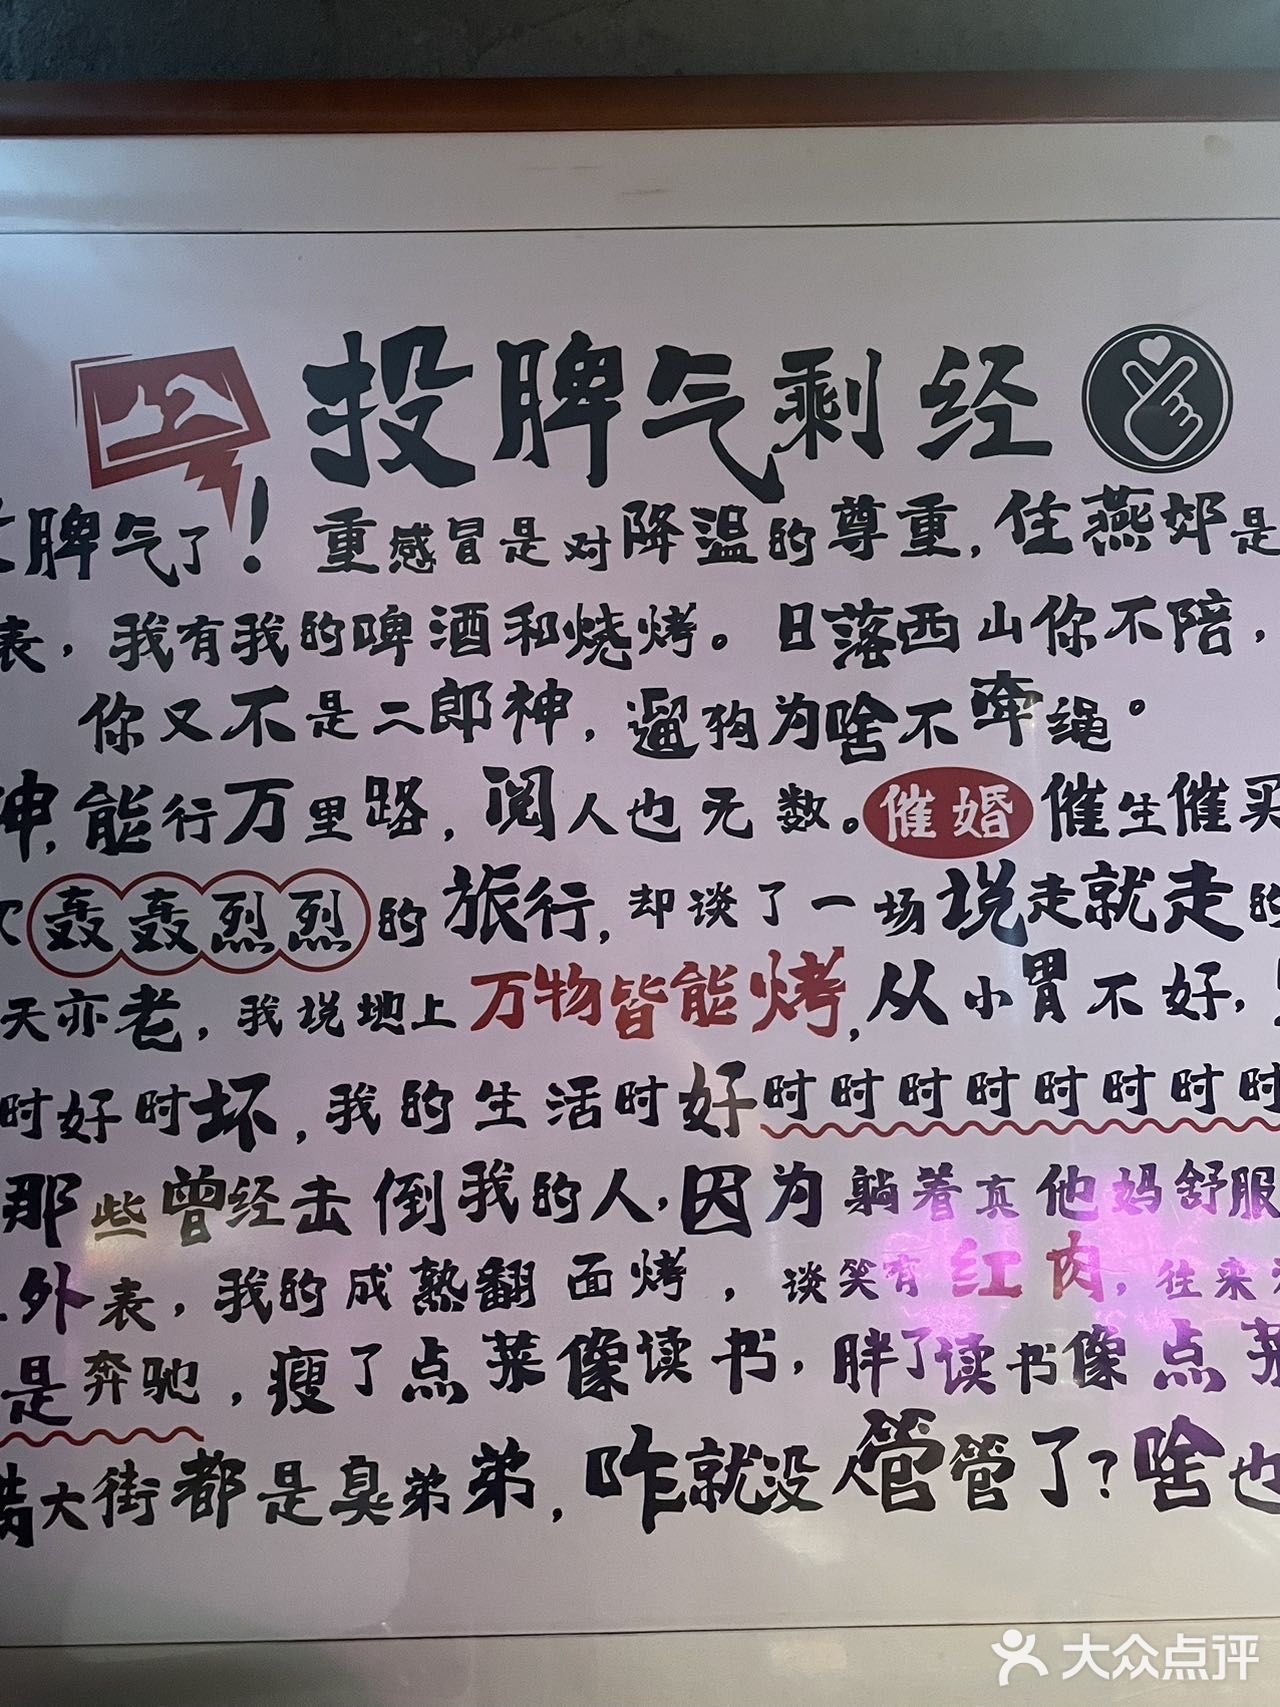 投脾气剩经
脾气了！重感冒是对降温的尊重，住燕郊是
表，我有我的啤酒和烧烤。日落西山你不陪，
你又不是二郎神，遛狗为啥不牵绳。
神，能行万里路，阅人也无数。催婚催生催买
轰轰烈烈的旅行，却谈了一场说走就走的
天亦老，我说地上万物皆能烤，从小胃不好，
时好时坏，我的生活时好时时时时时时时时
那些曾经击倒我的人，因为躺着真他妈舒服
外表，我的成熟翻面烤，谈笑有红肉，往来
是奔驰，瘦了点菜像读书，胖了读书像点菜
满大街都是臭弟弟，咋就没人管管了？啥也
大众点评